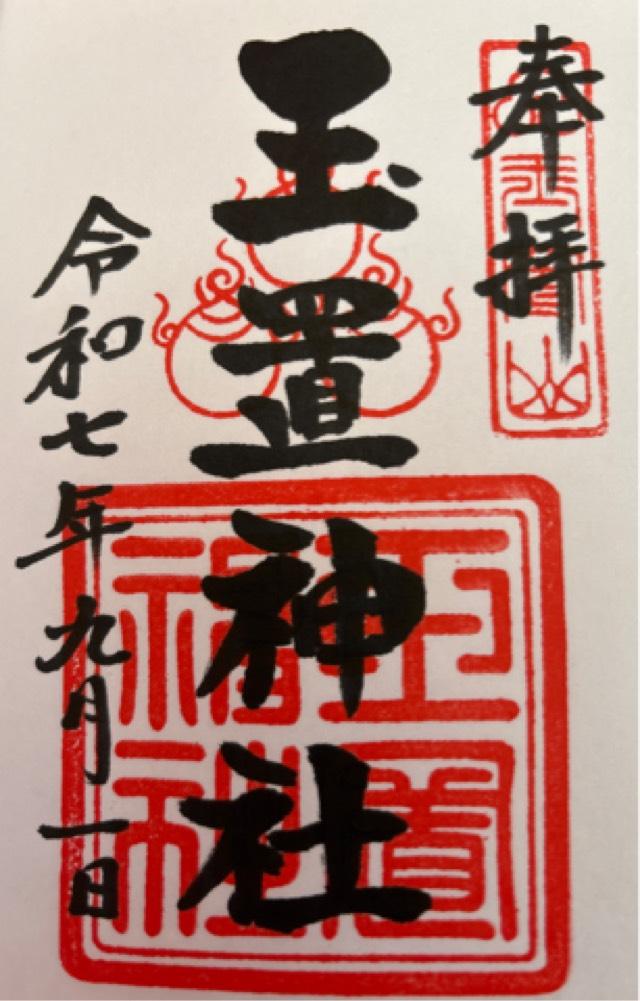 奉拝
玉置山
玉置神社
玉置神社
令和七年九月一日